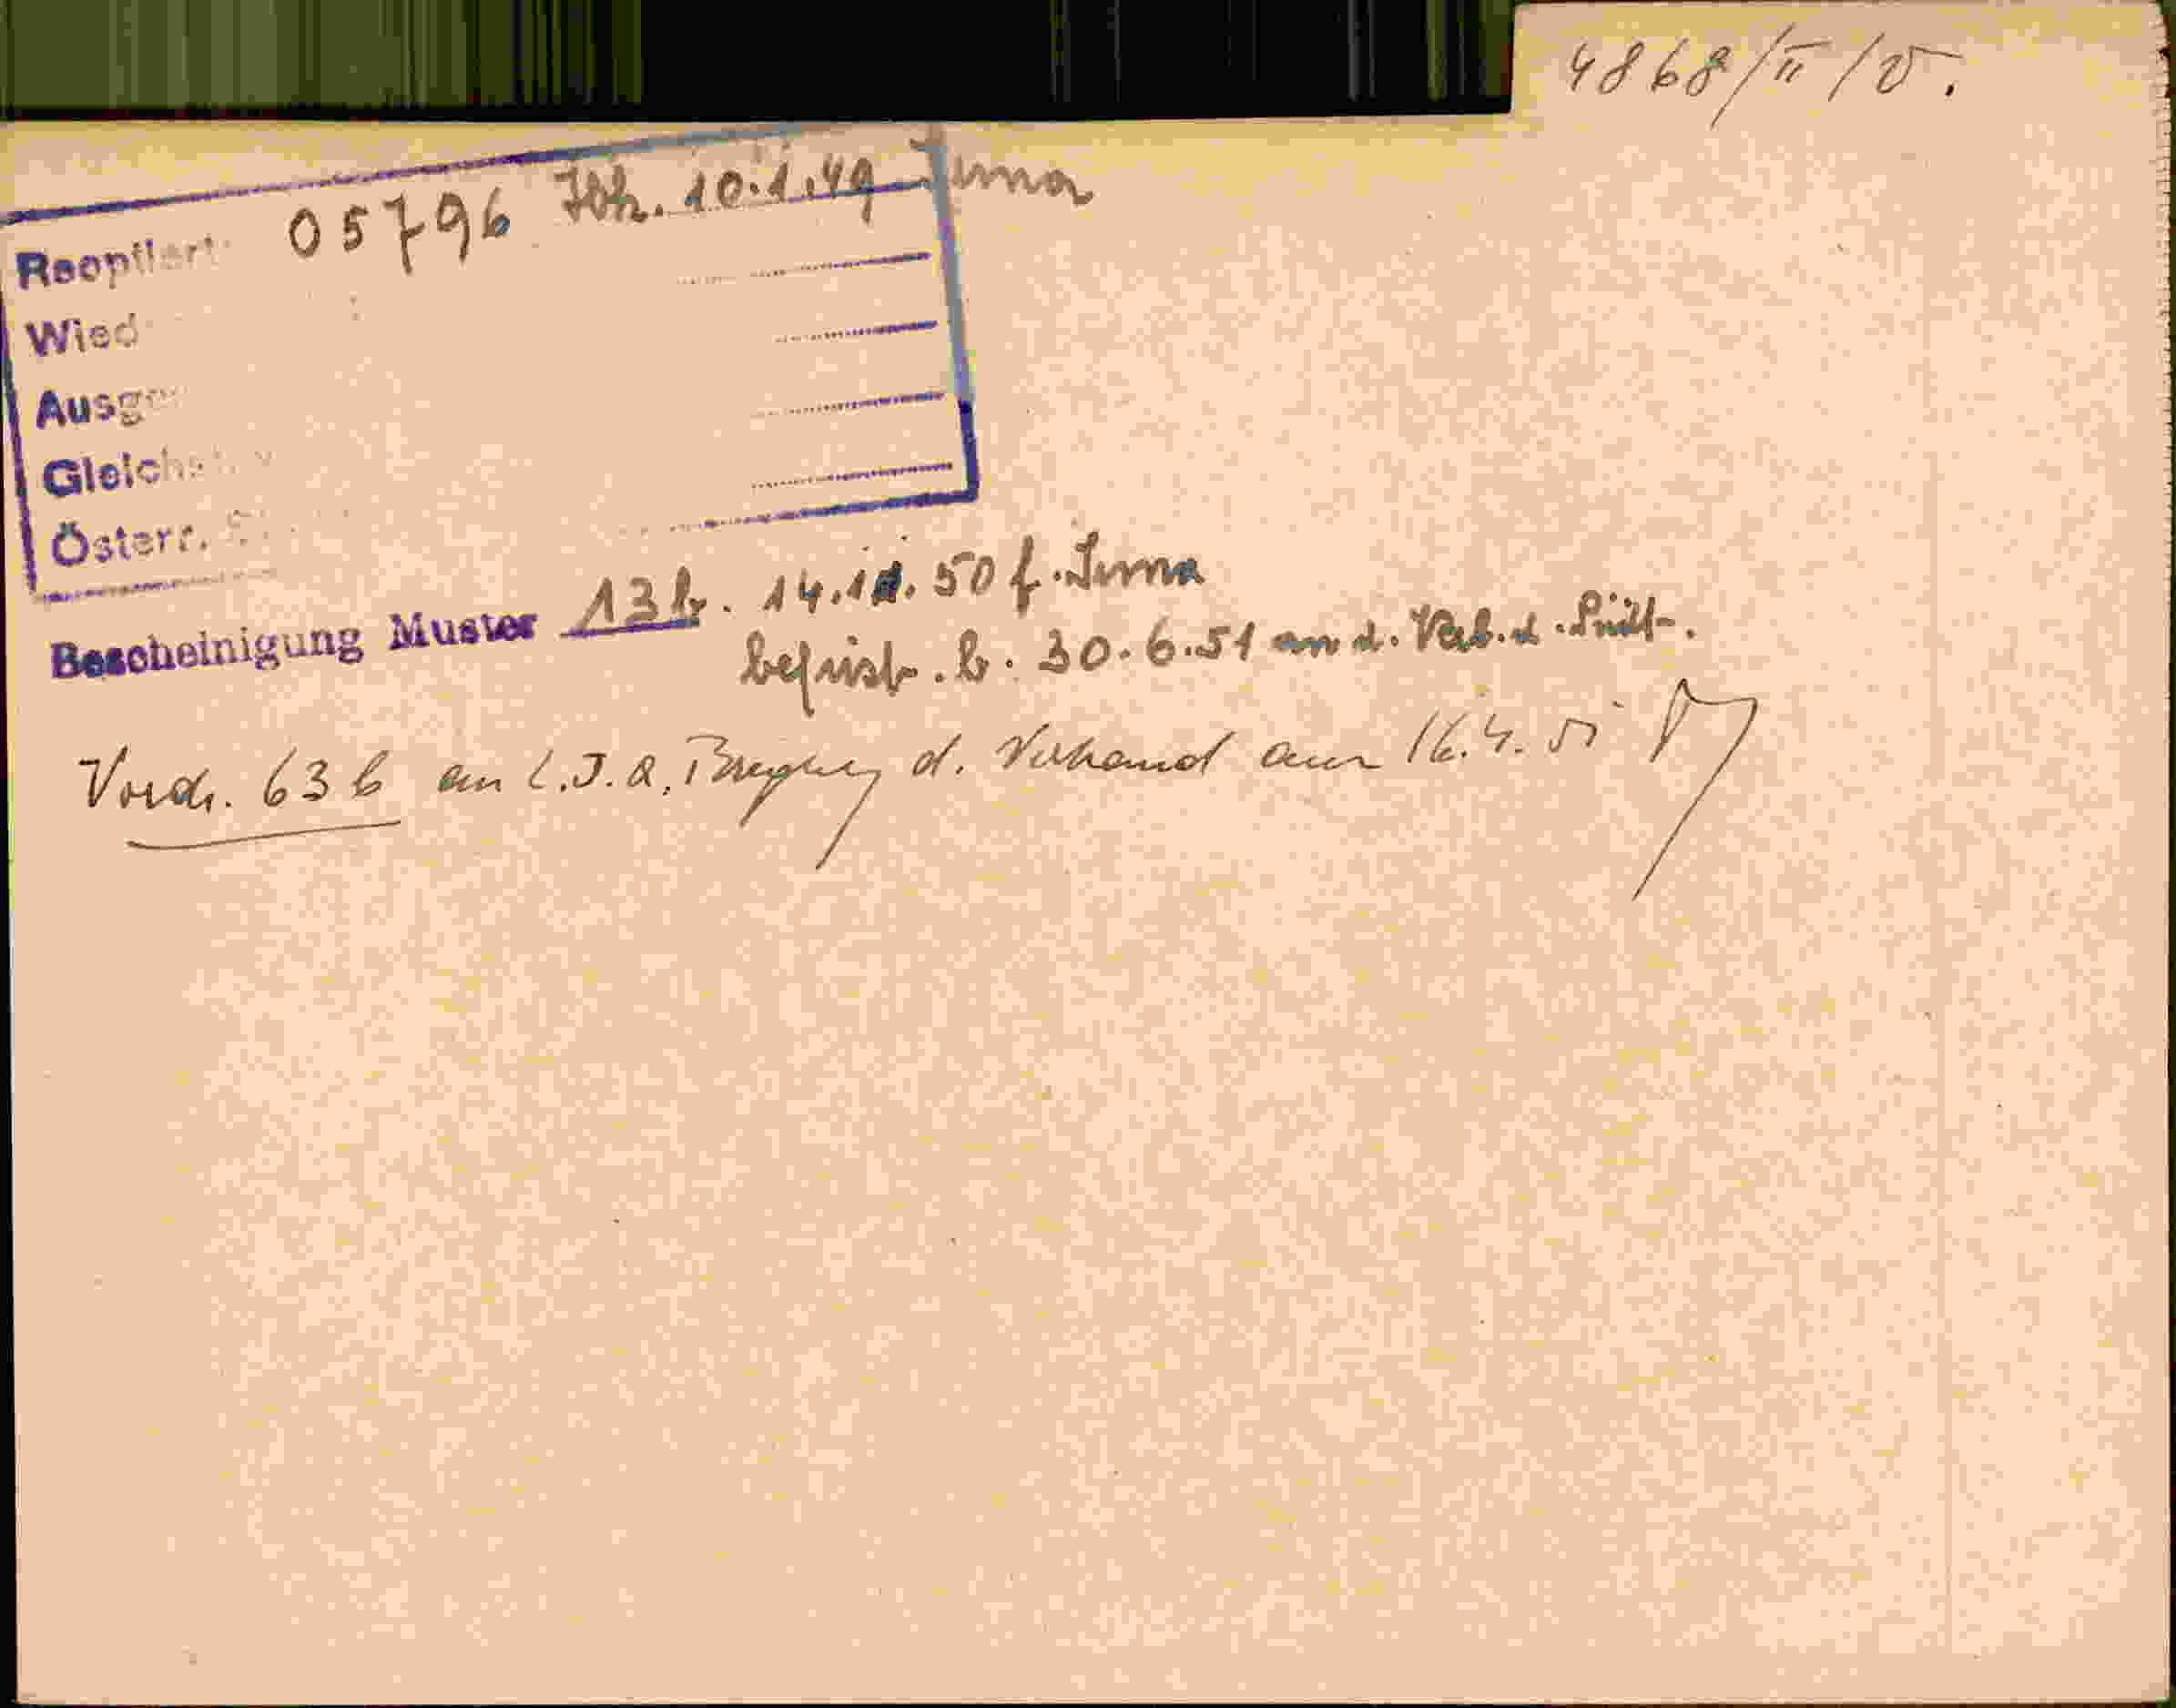 4868/II/V.
Reoptiert 05796 Ibk. 10.1.49 Irma
Wied
Ausge
Gleich
Österr.
Bescheinigung Muster 13b. 14.11.50 f. Irma
befrist. b. 30.6.51 an d. Verb. d. Südt.
Vordr. 63b an L.I.A. d. Verband am 16.4.51